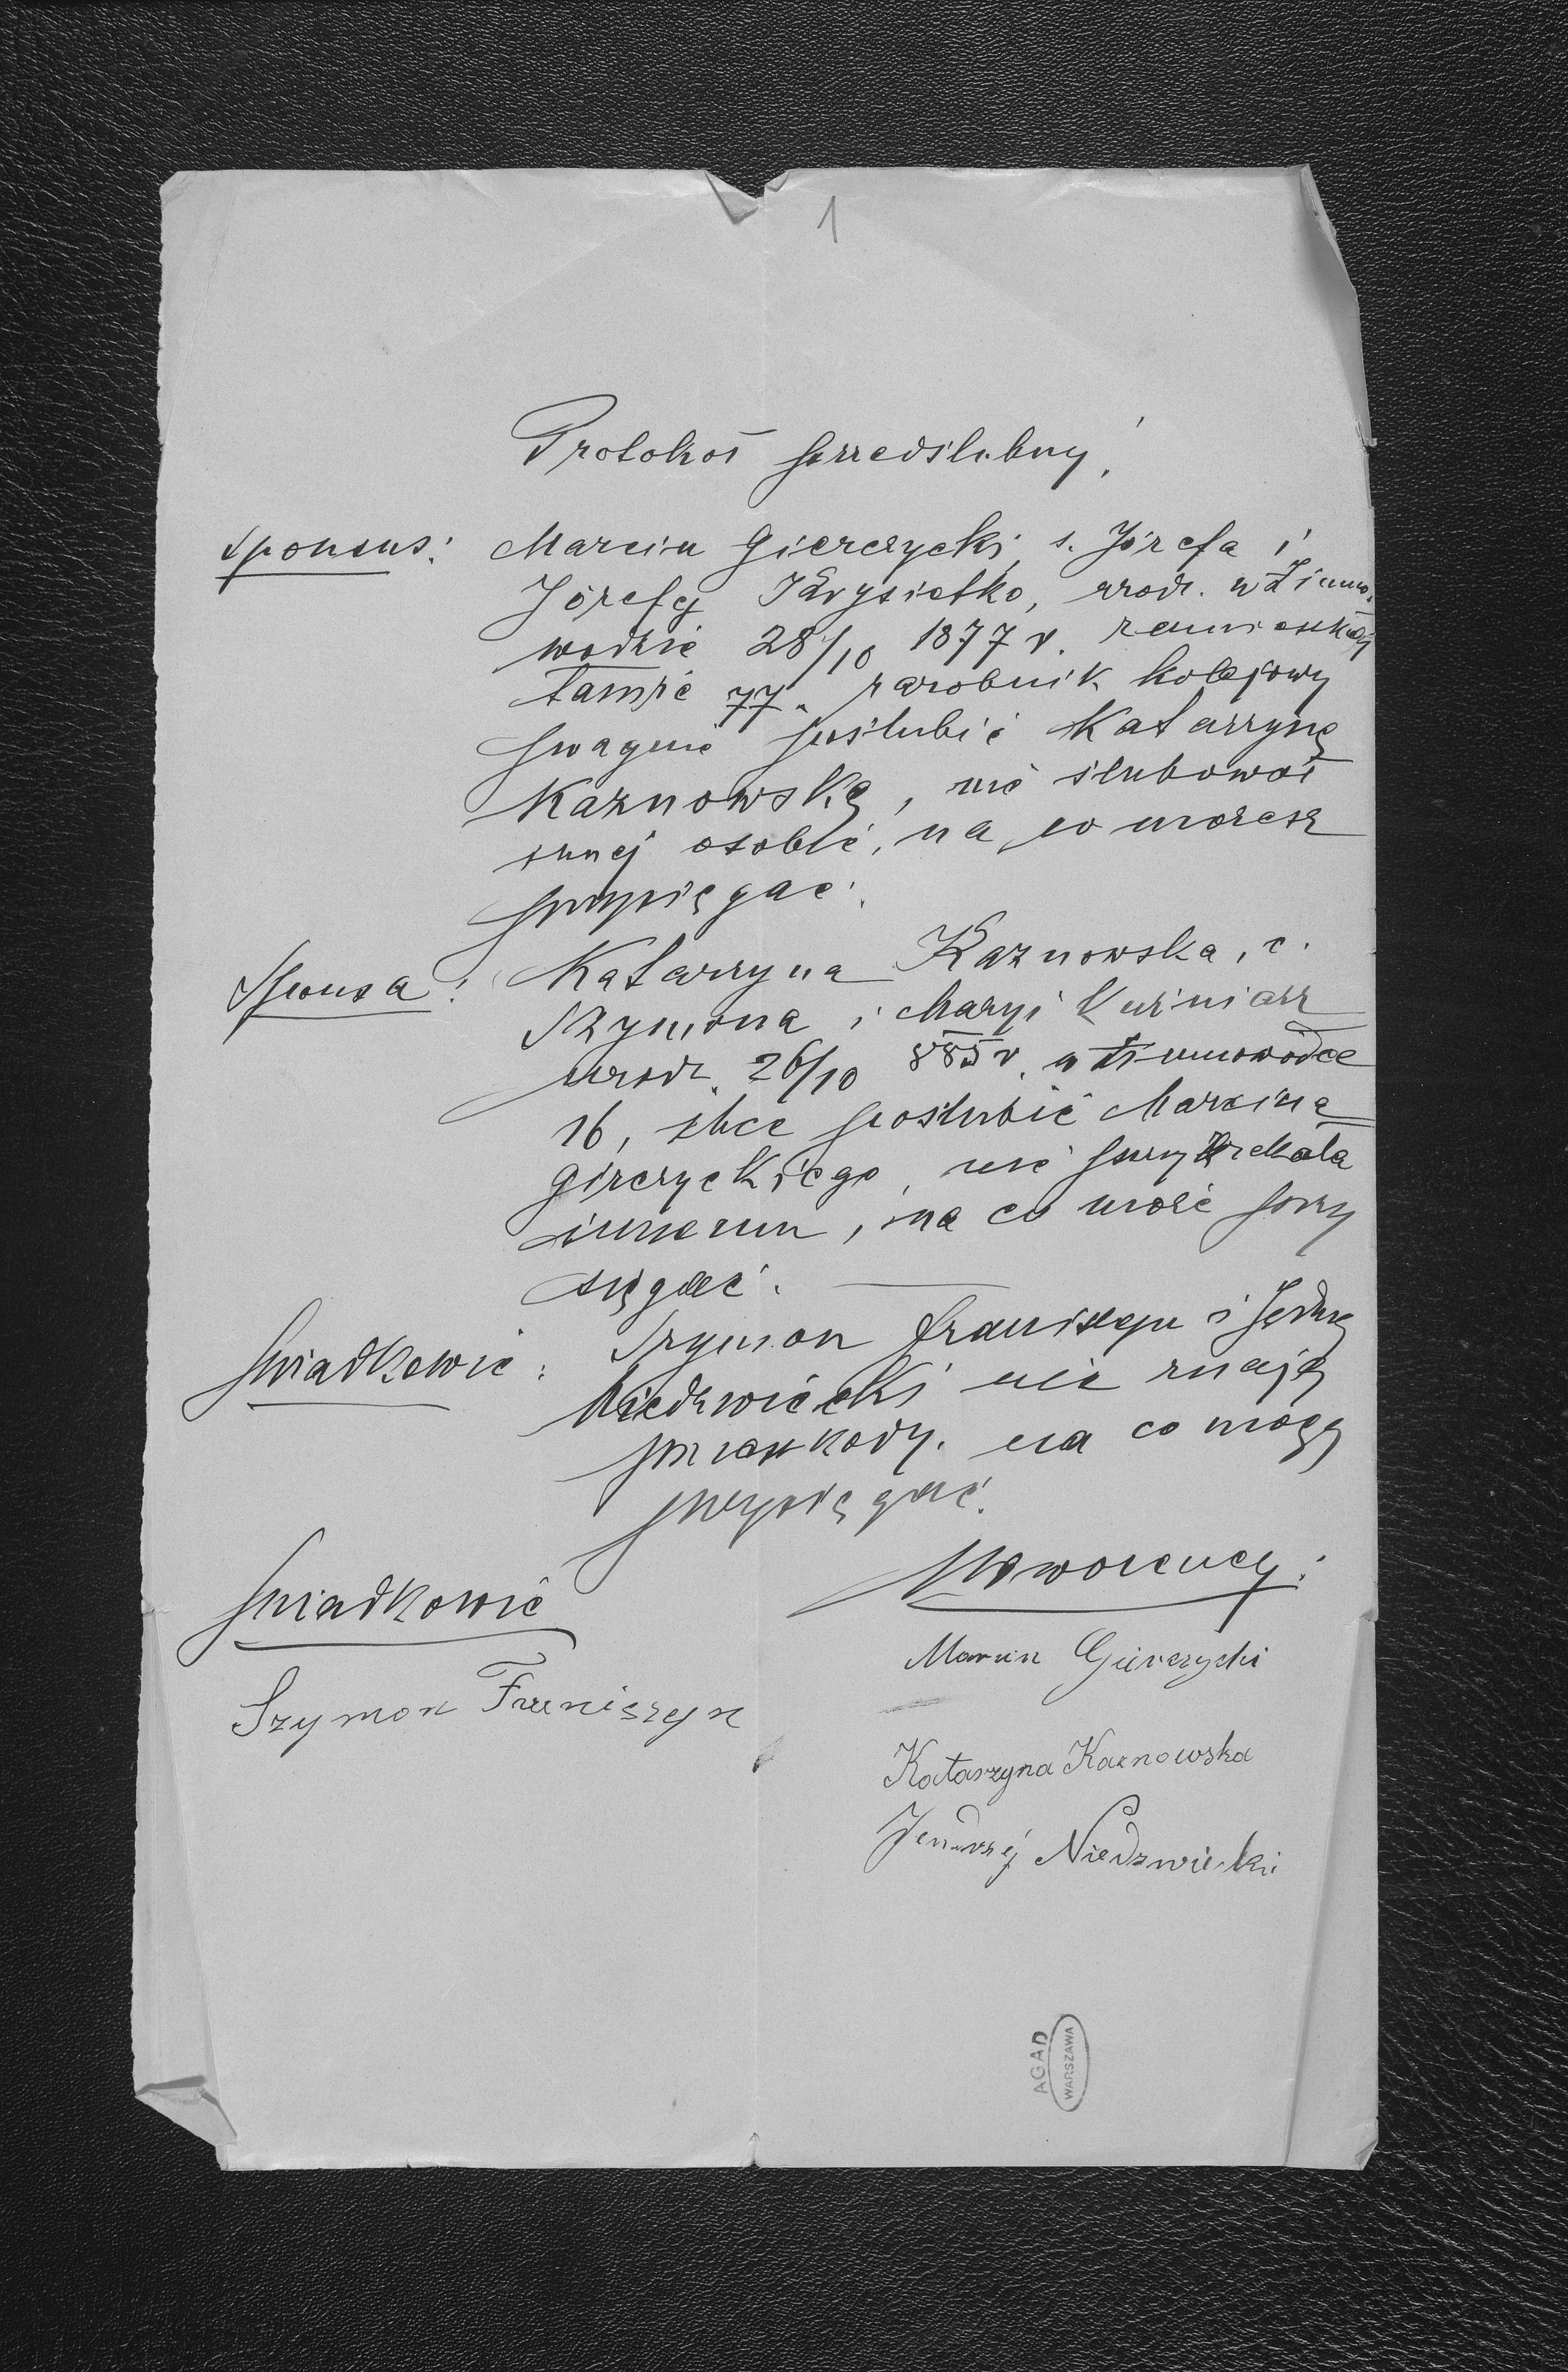 1
Protokoł przedślubny!
Sponsus: Marcin Gierczycki, s. Józefa i
Józefy Krysietko, urodz. w Zimno-
wodzie 28/10 1877 r. zamieszkały
tamże 77. zarobnik kolejowy
pragnie poślubić Katarzynę
Kaznowską, nie ślubował
innej osobie, na co może
przysięgać.
Sponsa: Katarzyna Kaznowska, c.
Szymona i Maryi Kuźniarz
urodz. 26/10 885 r. w Zimnowodce
16, chce poślubić Marcina
Girczyckiego, nie przyrzekała
innemu, na co może przy
sięgać.
Świadkowie: Szymon Franiszyn i Jędrzej
Niedzwiecki nie znają
przeszkody. na co mogą
przysięgać.
Świadkowie
Szymon Franiszyn
Nowożeńcy:
Marcin Gierczycki
Katarzyna Kaznowska
Jendrzéj Niedzwiecki
AGAD
WARSZAWA